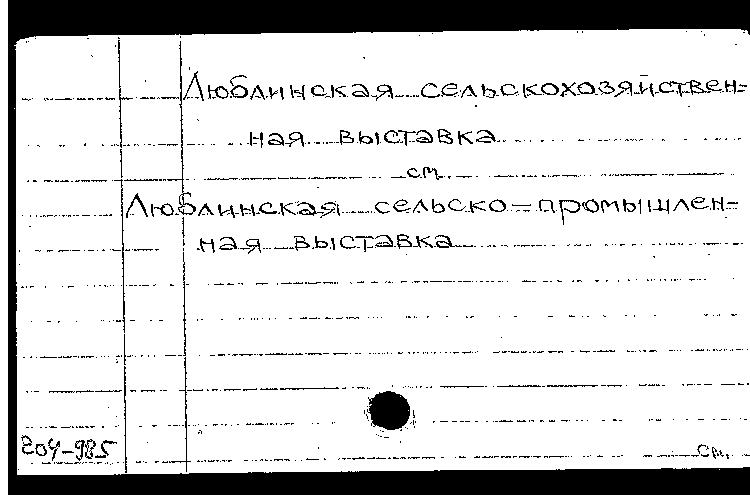 Люблинская сельскохозяйствен=
ная выставка
см.
Люблинская сельско=промышлен=
ная выставка
204-985
см.